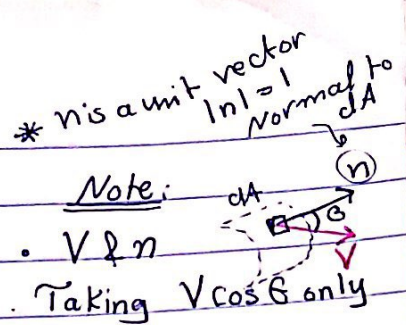 * n is a unit vector
|n| = 1
Normal to
dA
n
Note:
dA
θ
• V & n
V
. Taking V cos θ only